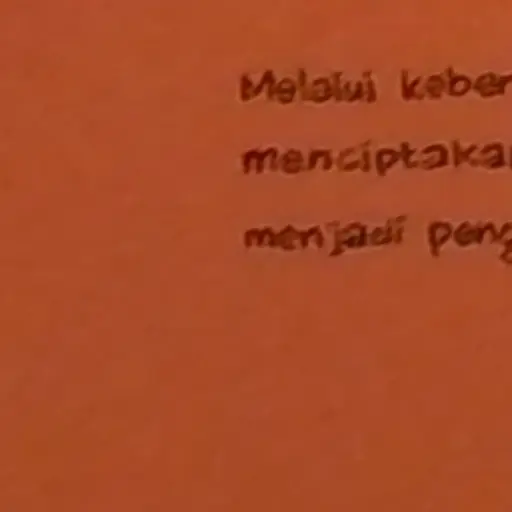 Melalui keber
menciptaka
menjadi peng